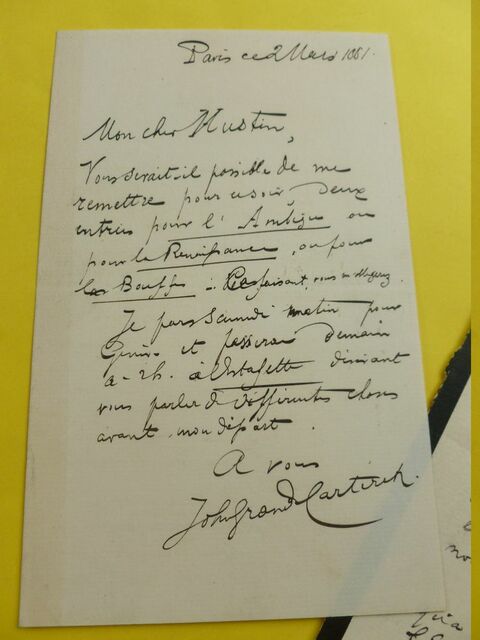 Paris ce 2 Mars 1881.
Mon cher Hustin,
Vous serait-il possible de me
remettre pour ce soir, deux
entrées pour l'Ambigu ou
pour la Renaissance, ou pour
les Bouffes - Ce faisant, vous m'obligerez.
Je pars Samedi matin pour
et passerai demain
à 2h. à l'Estafette désirant
vous parler de différentes choses
avant mon départ.
A vous
John Grand-Carteret.
no